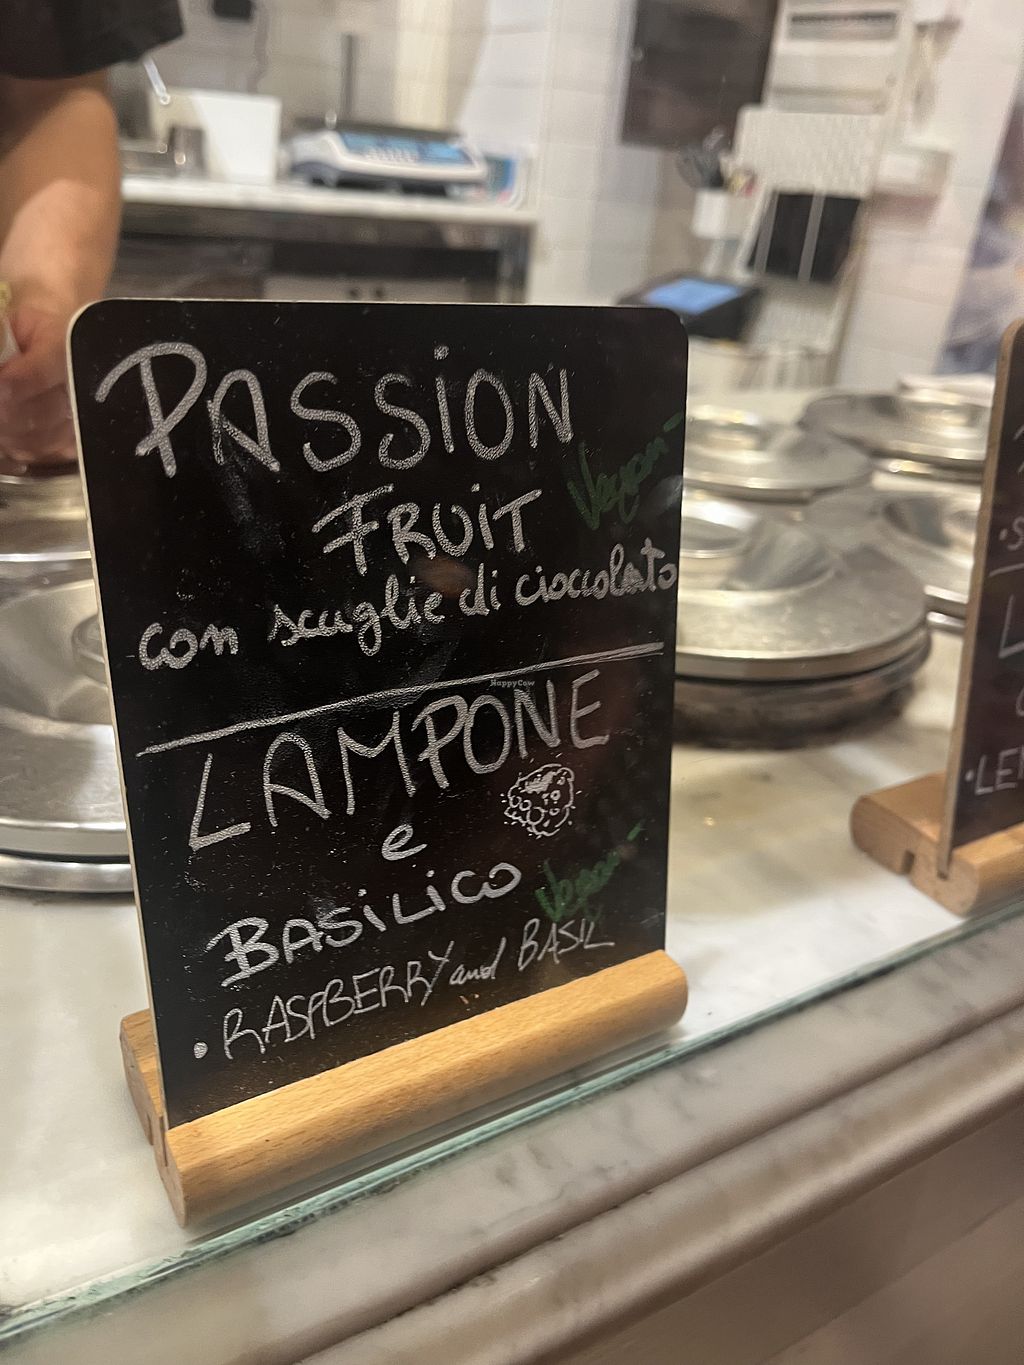 PASSION
FRUIT
Vegan
con scaglie di cioccolato
HappyCow
LAMPONE
e
BASiLiCO
Vegan
• RASPBERRY and BASIL